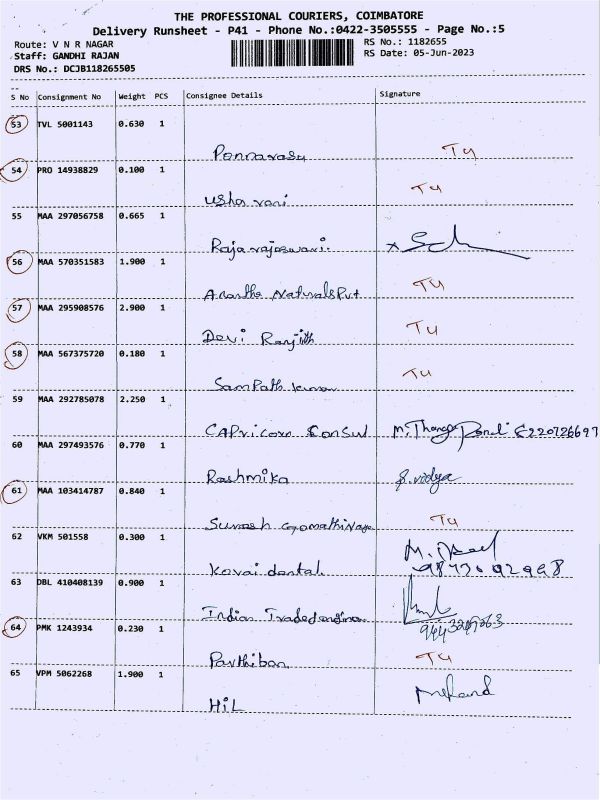 THE PROFESSIONAL COURIERS, COIMBATORE
Delivery Runsheet - P41 - Phone No.:0422-3505555 - Page No.:5
Route: V N R NAGAR RS No.: 1182655
Staff: GANDHI RAJAN RS Date: 05-Jun-2023
DRS No.: DCJB118265505
S No Consignment No Weight PCS Consignee Details Signature
53 TVL 5001143 0.630 1
Ponnavasu T4
54 PRO 14938829 0.100 1
Usha rani T4
55 MAA 297056758 0.665 1
Rajarajeswari
56 MAA 570351583 1.900 1
Anantha Naturals Pvt T4
57 MAA 295908576 2.900 1
Devi Ranjith T4
58 MAA 567375720 0.180 1
SamPath kumar T4
59 MAA 292785078 2.250 1
CAPricorn Consul
60 MAA 297493576 0.770 1
Rashmika S.vidya
61 MAA 103414787 0.840 1
Suresh Gomathinaya T4
62 VKM 501558 0.300 1
Kovai dental
63 DBL 410408139 0.900 1
Indian Trade
64 PMK 1243934 0.230 1
Parthiban T4
65 VPM 5062268 1.900 1
HiL